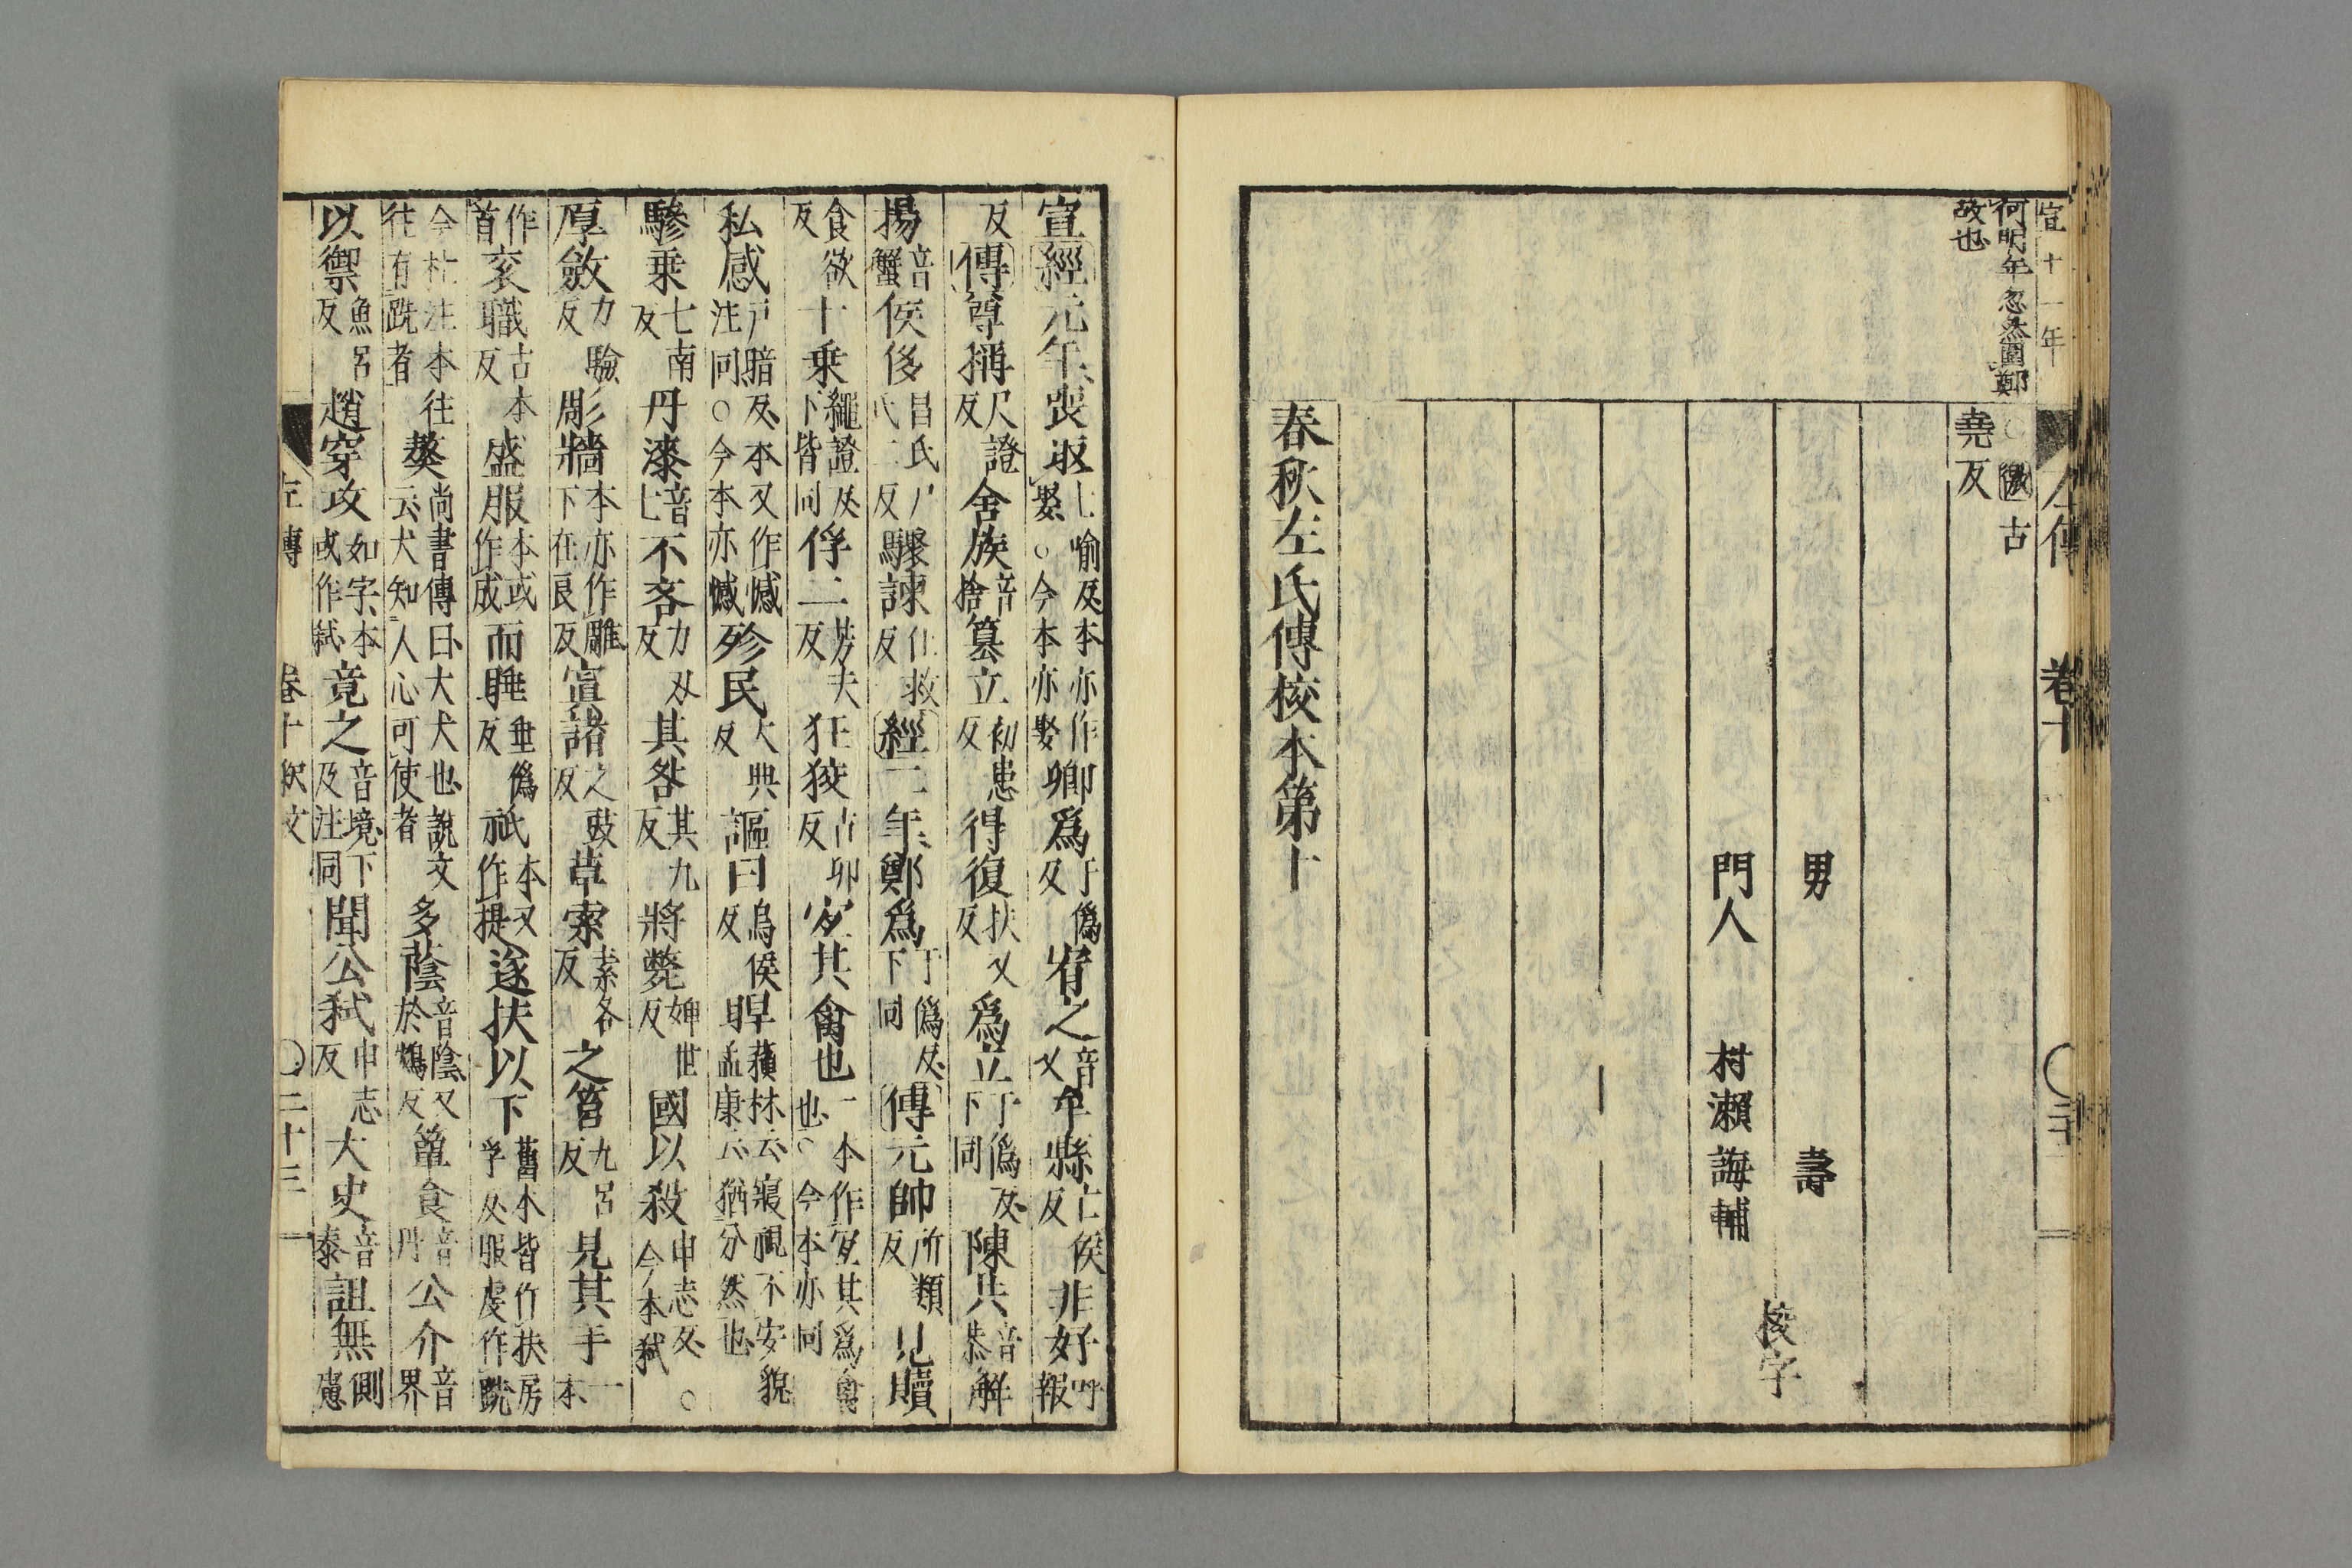 宣十一年
左傳
卷十
何明年忽然圍鄭
故也
徼古
堯反
男　壽
門人　村瀨誨輔
校字
春秋左氏傳校本第十
宣經元年喪取七喻反本亦作娶○今本亦娶卿爲于僞反宥之音又牟縣亡侯反非好呼報
反傳尊稱尺證反舍族音捨篡立初患反得復扶又反爲立于僞反下同陳共音恭解
揚音蟹侯侈昌氏反尸氏二反驟諫仕救反經二年鄭爲于僞反下同傳元帥所類反見贖
食欲反十乘繩證反下皆同俘二芳夫反狂狡古卯反冝其禽也一本作冝其爲禽也○今本亦同
私感戶暗反本又作憾注同○今本亦憾殄民大典反謳曰烏侯反睅蘇林云寢視不安貌孟康云猶分然也
驂乗七南反丹漆音七不吝力刄反其咎其九反將斃婢世反國以殺申志反○今本弑
厚斂力驗反彫牆本亦作雕下在良反宣諸之豉反草索素各反之筥九呂反見其手一本
作首衮職古本反盛服本或作成而睡垂僞反祇本又作提遂扶以下舊本皆作扶房孚反服虔作跣
今杜注本往往有跣者獒尚書傳曰大犬也說文云犬知人心可使者多蔭音陰又於鴆反簞食音丹公介音界
以禦魚呂反趙穿攻如字本或作弑竟之音境下及注同聞公弑申志反大史音泰詛無側慮
左傳　卷十釈文　二十三